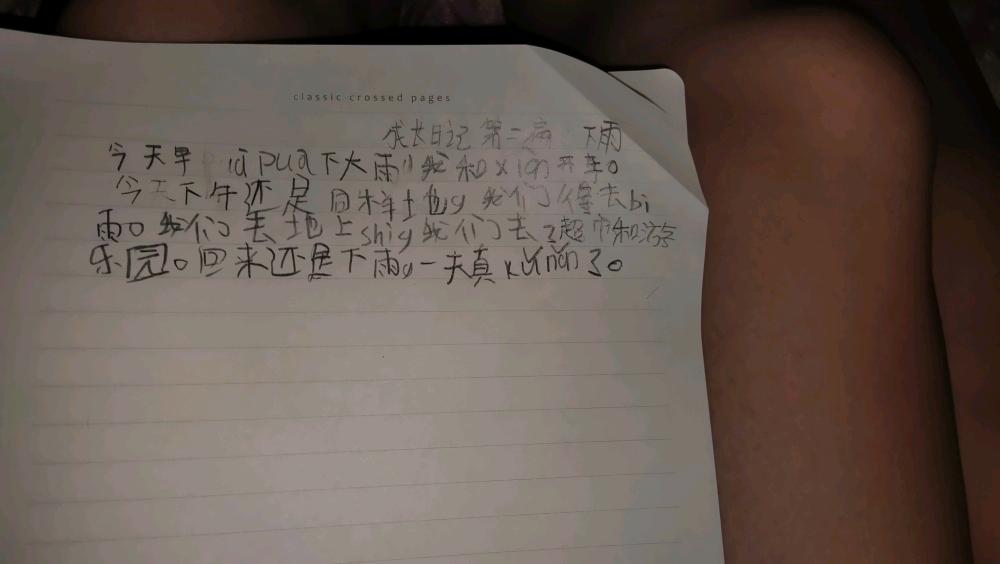 classic crossed pages
成长日记 第二篇 下雨
今天早 下大雨，我和 xiǎn 开车。
今天下午还是同样地，我们得去bì
雨。我们去地上shi，我们去了超市和游
乐园。回来还是下雨，一天真 kùnnàn 了。